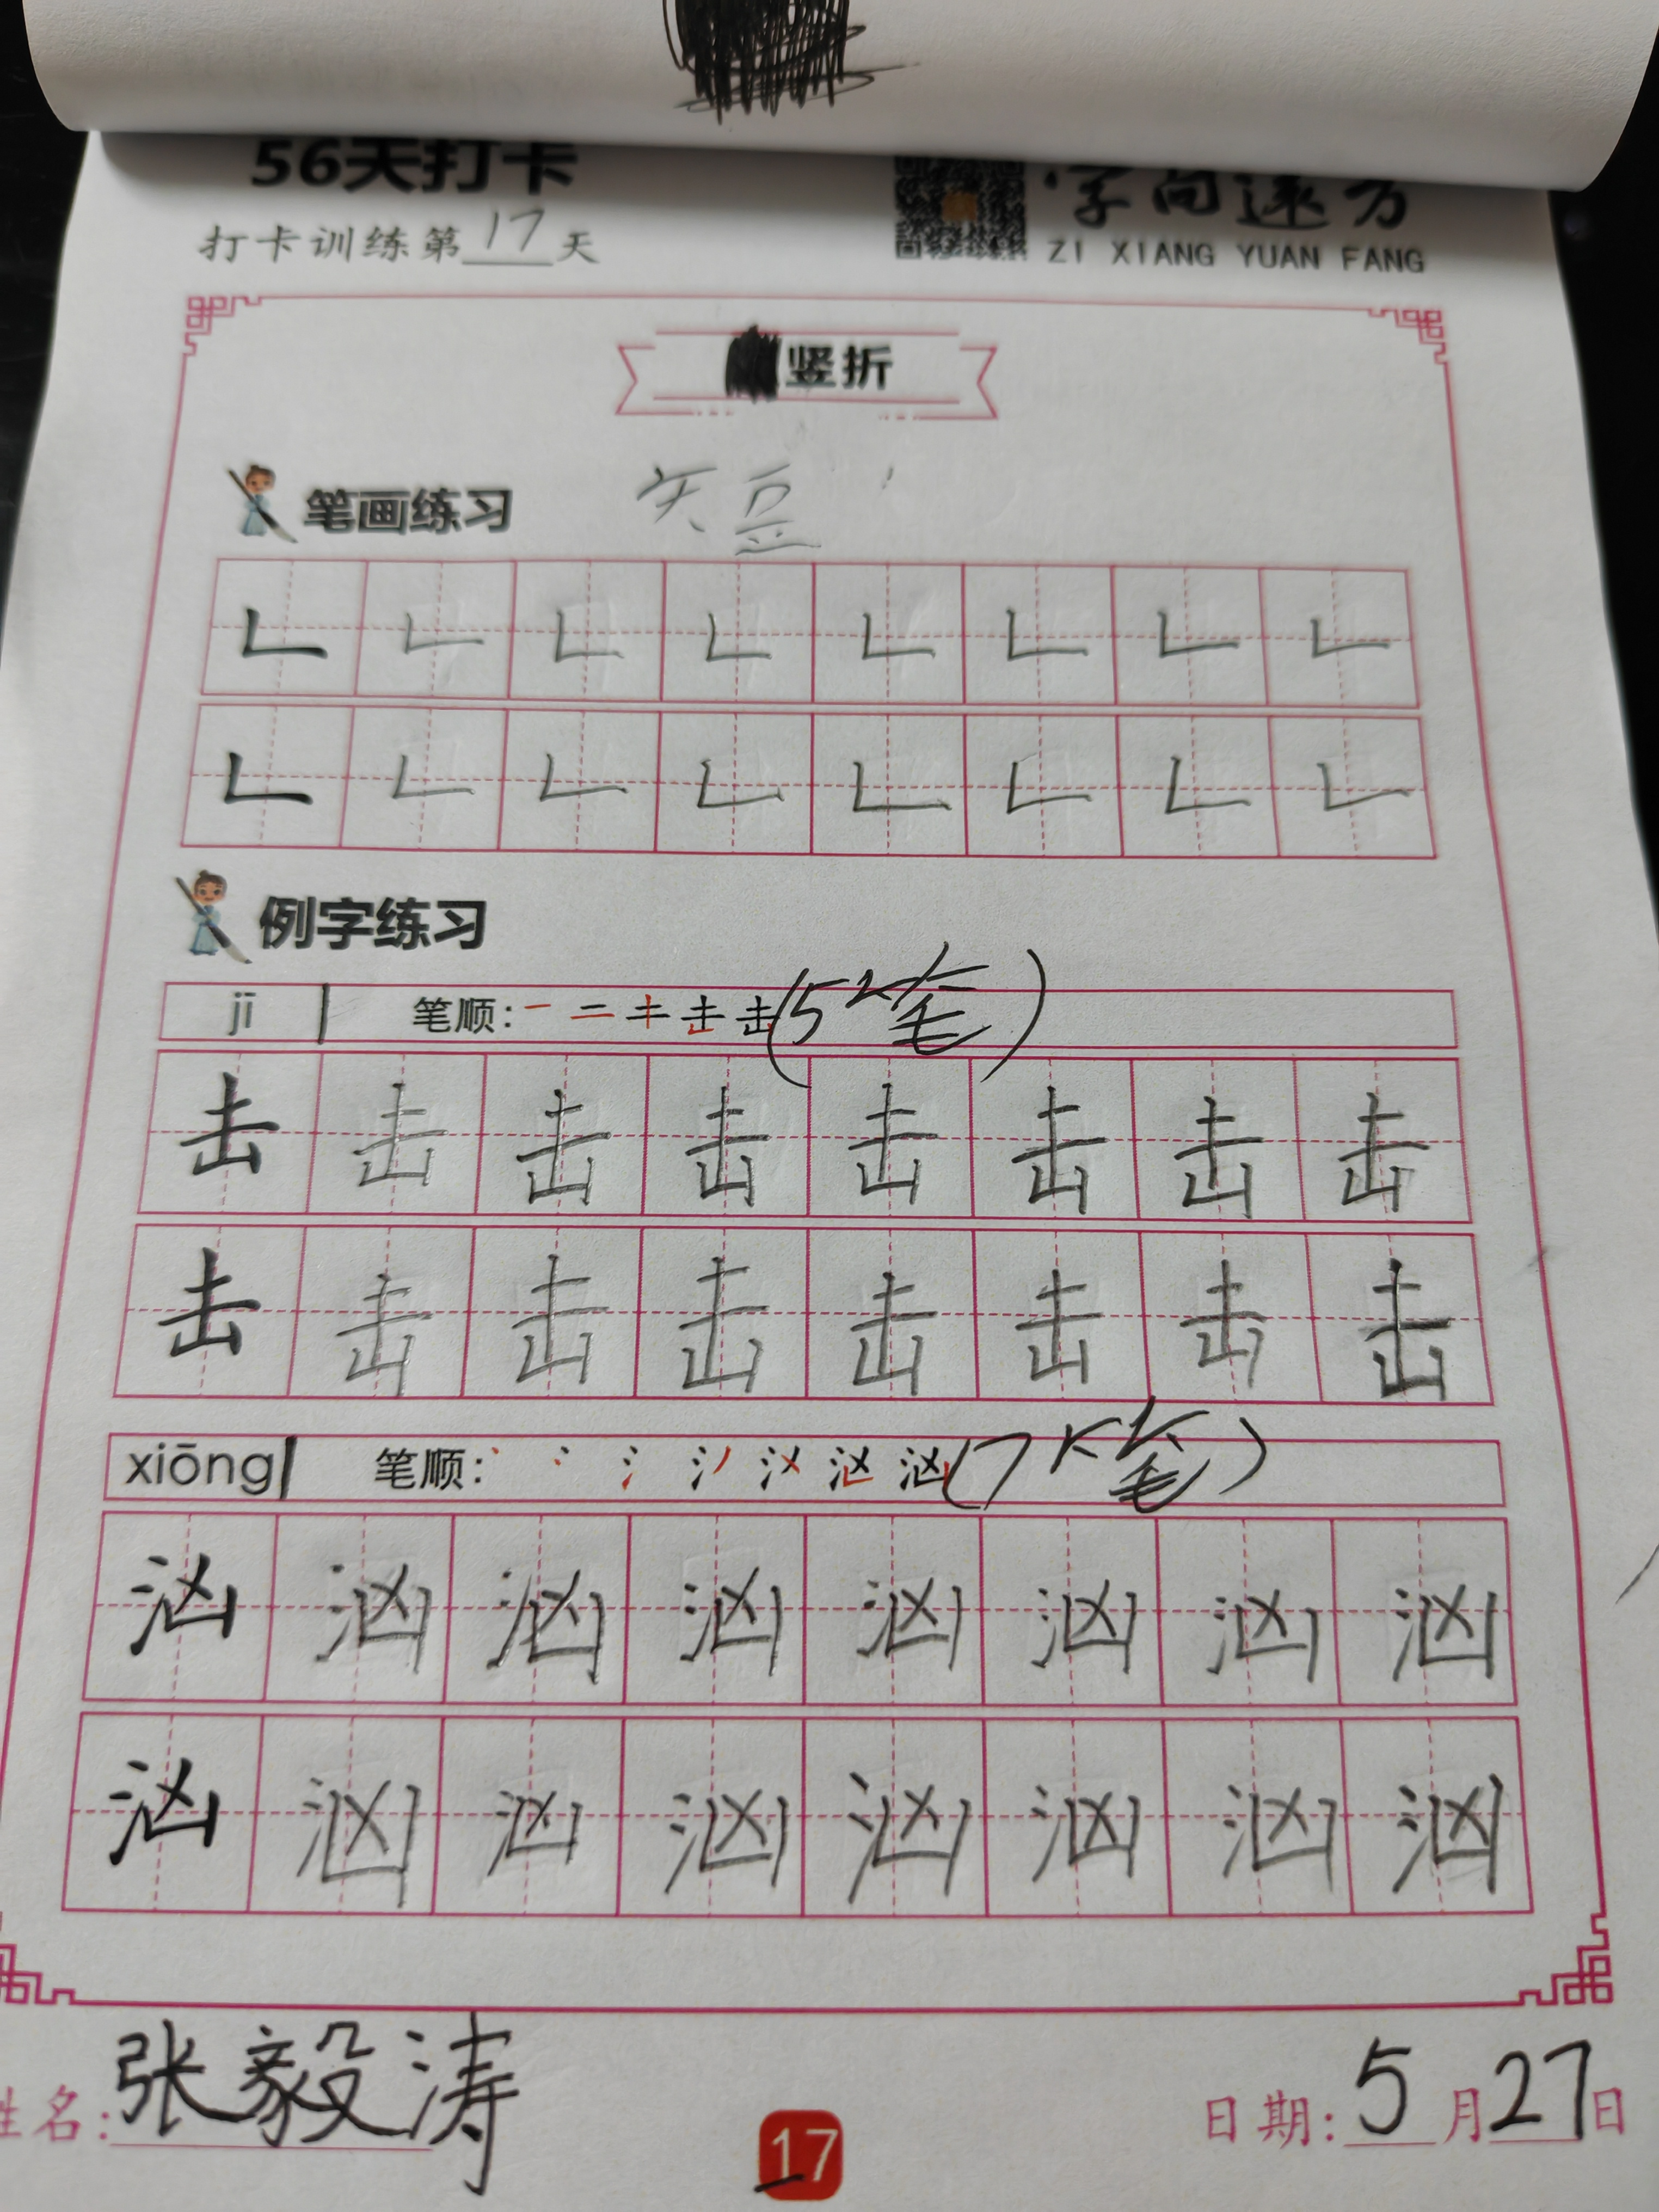 56天打卡
字向远方
打卡训练第17天
ZI XIANG YUAN FANG
竖折
笔画练习
矢豆
𠃊 𠃊 𠃊 𠃊 𠃊 𠃊 𠃊 𠃊
𠃊 𠃊 𠃊 𠃊 𠃊 𠃊 𠃊 𠃊
例字练习
jī 笔顺: 击(5个笔)
击 击 击 击 击 击 击 击
击 击 击 击 击 击 击 击
xiōng 笔顺: 汹(7个笔)
汹 汹 汹 汹 汹 汹 汹 汹
汹 汹 汹 汹 汹 汹 汹 汹
姓名:张毅涛
日期:5月27日
17